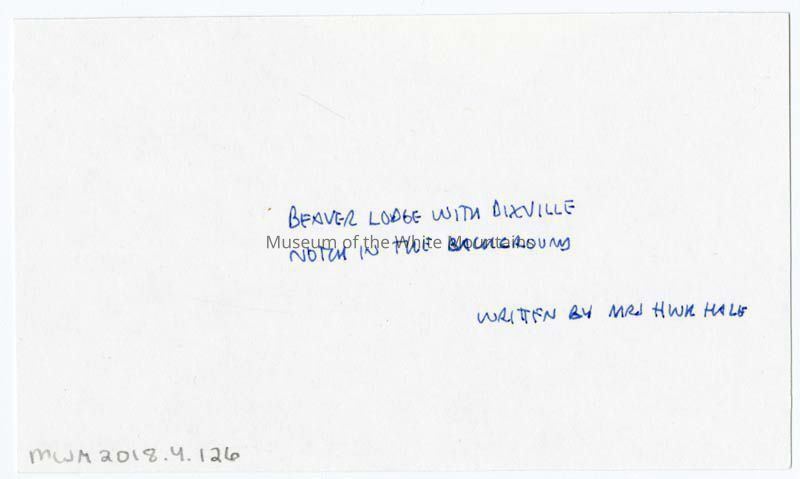 BEAVER LODGE WITH DIXVILLE
Museum of the White Mountains
NOTCH IN THE BACKGROUND
WRITTEN BY MRS HWK HALE
MWM 2018.4.126